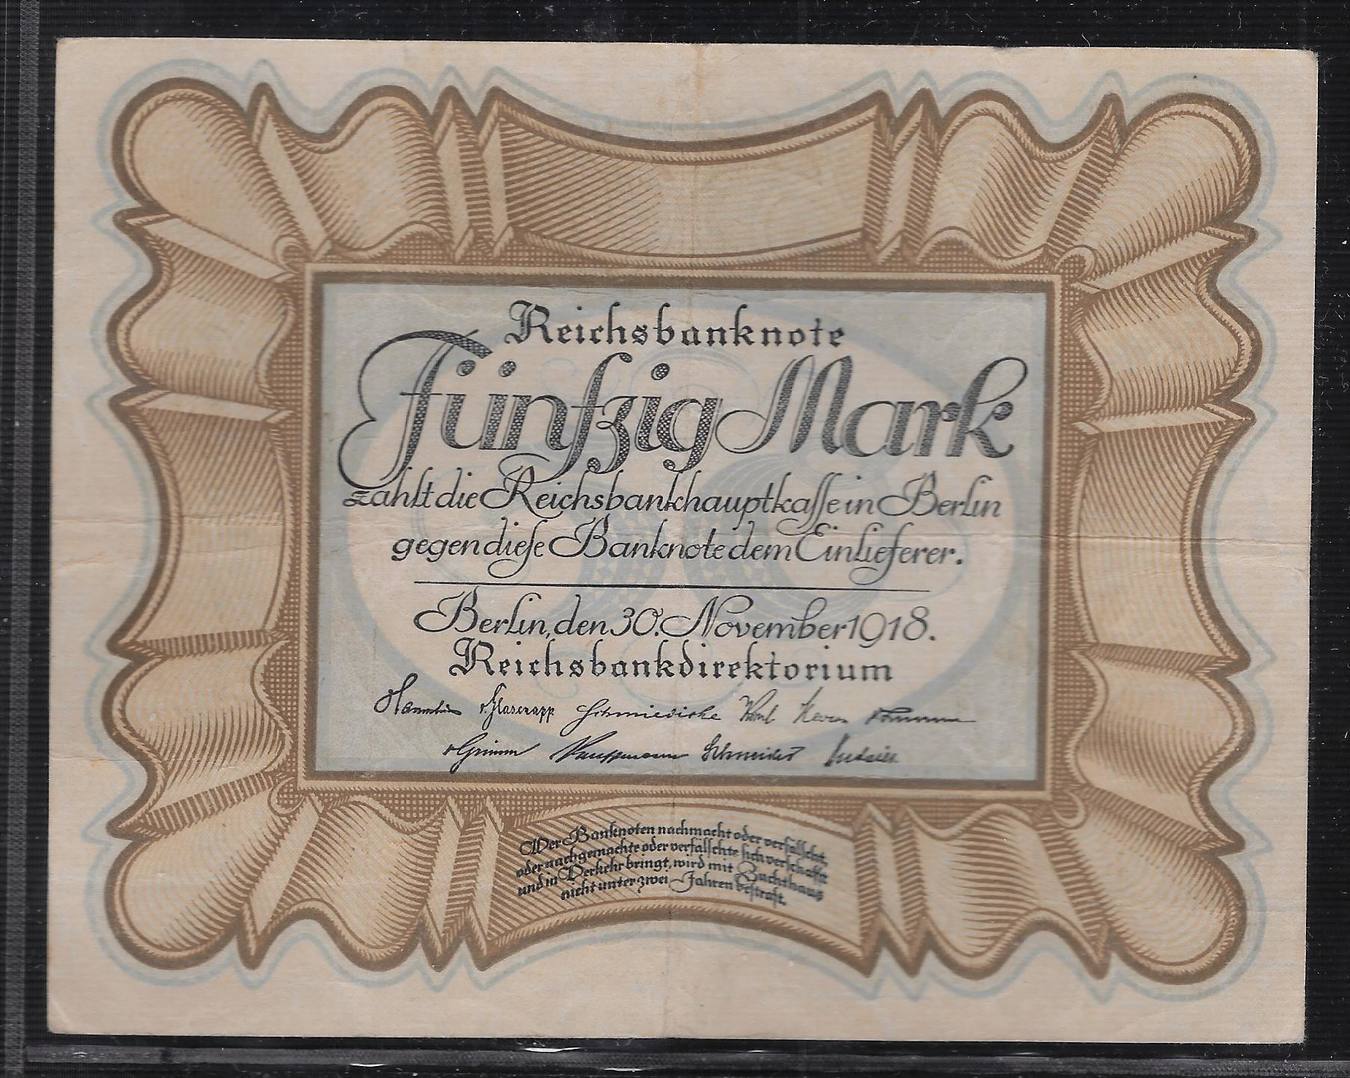 Reichsbanknote
Fünfzig Mark
zahlt die Reichsbankhauptkasse in Berlin
gegen diese Banknote dem Einlieferer.
Berlin, den 30. November 1918.
Reichsbankdirektorium
v Glasenapp Schmiedicke Korn
v Grimm Kauffmann Schneider
Wer Banknoten nachmacht oder verfälscht,
oder nachgemachte oder verfälschte sich verschafft
und in Verkehr bringt, wird mit Zuchthaus
nicht unter zwei Jahren bestraft.